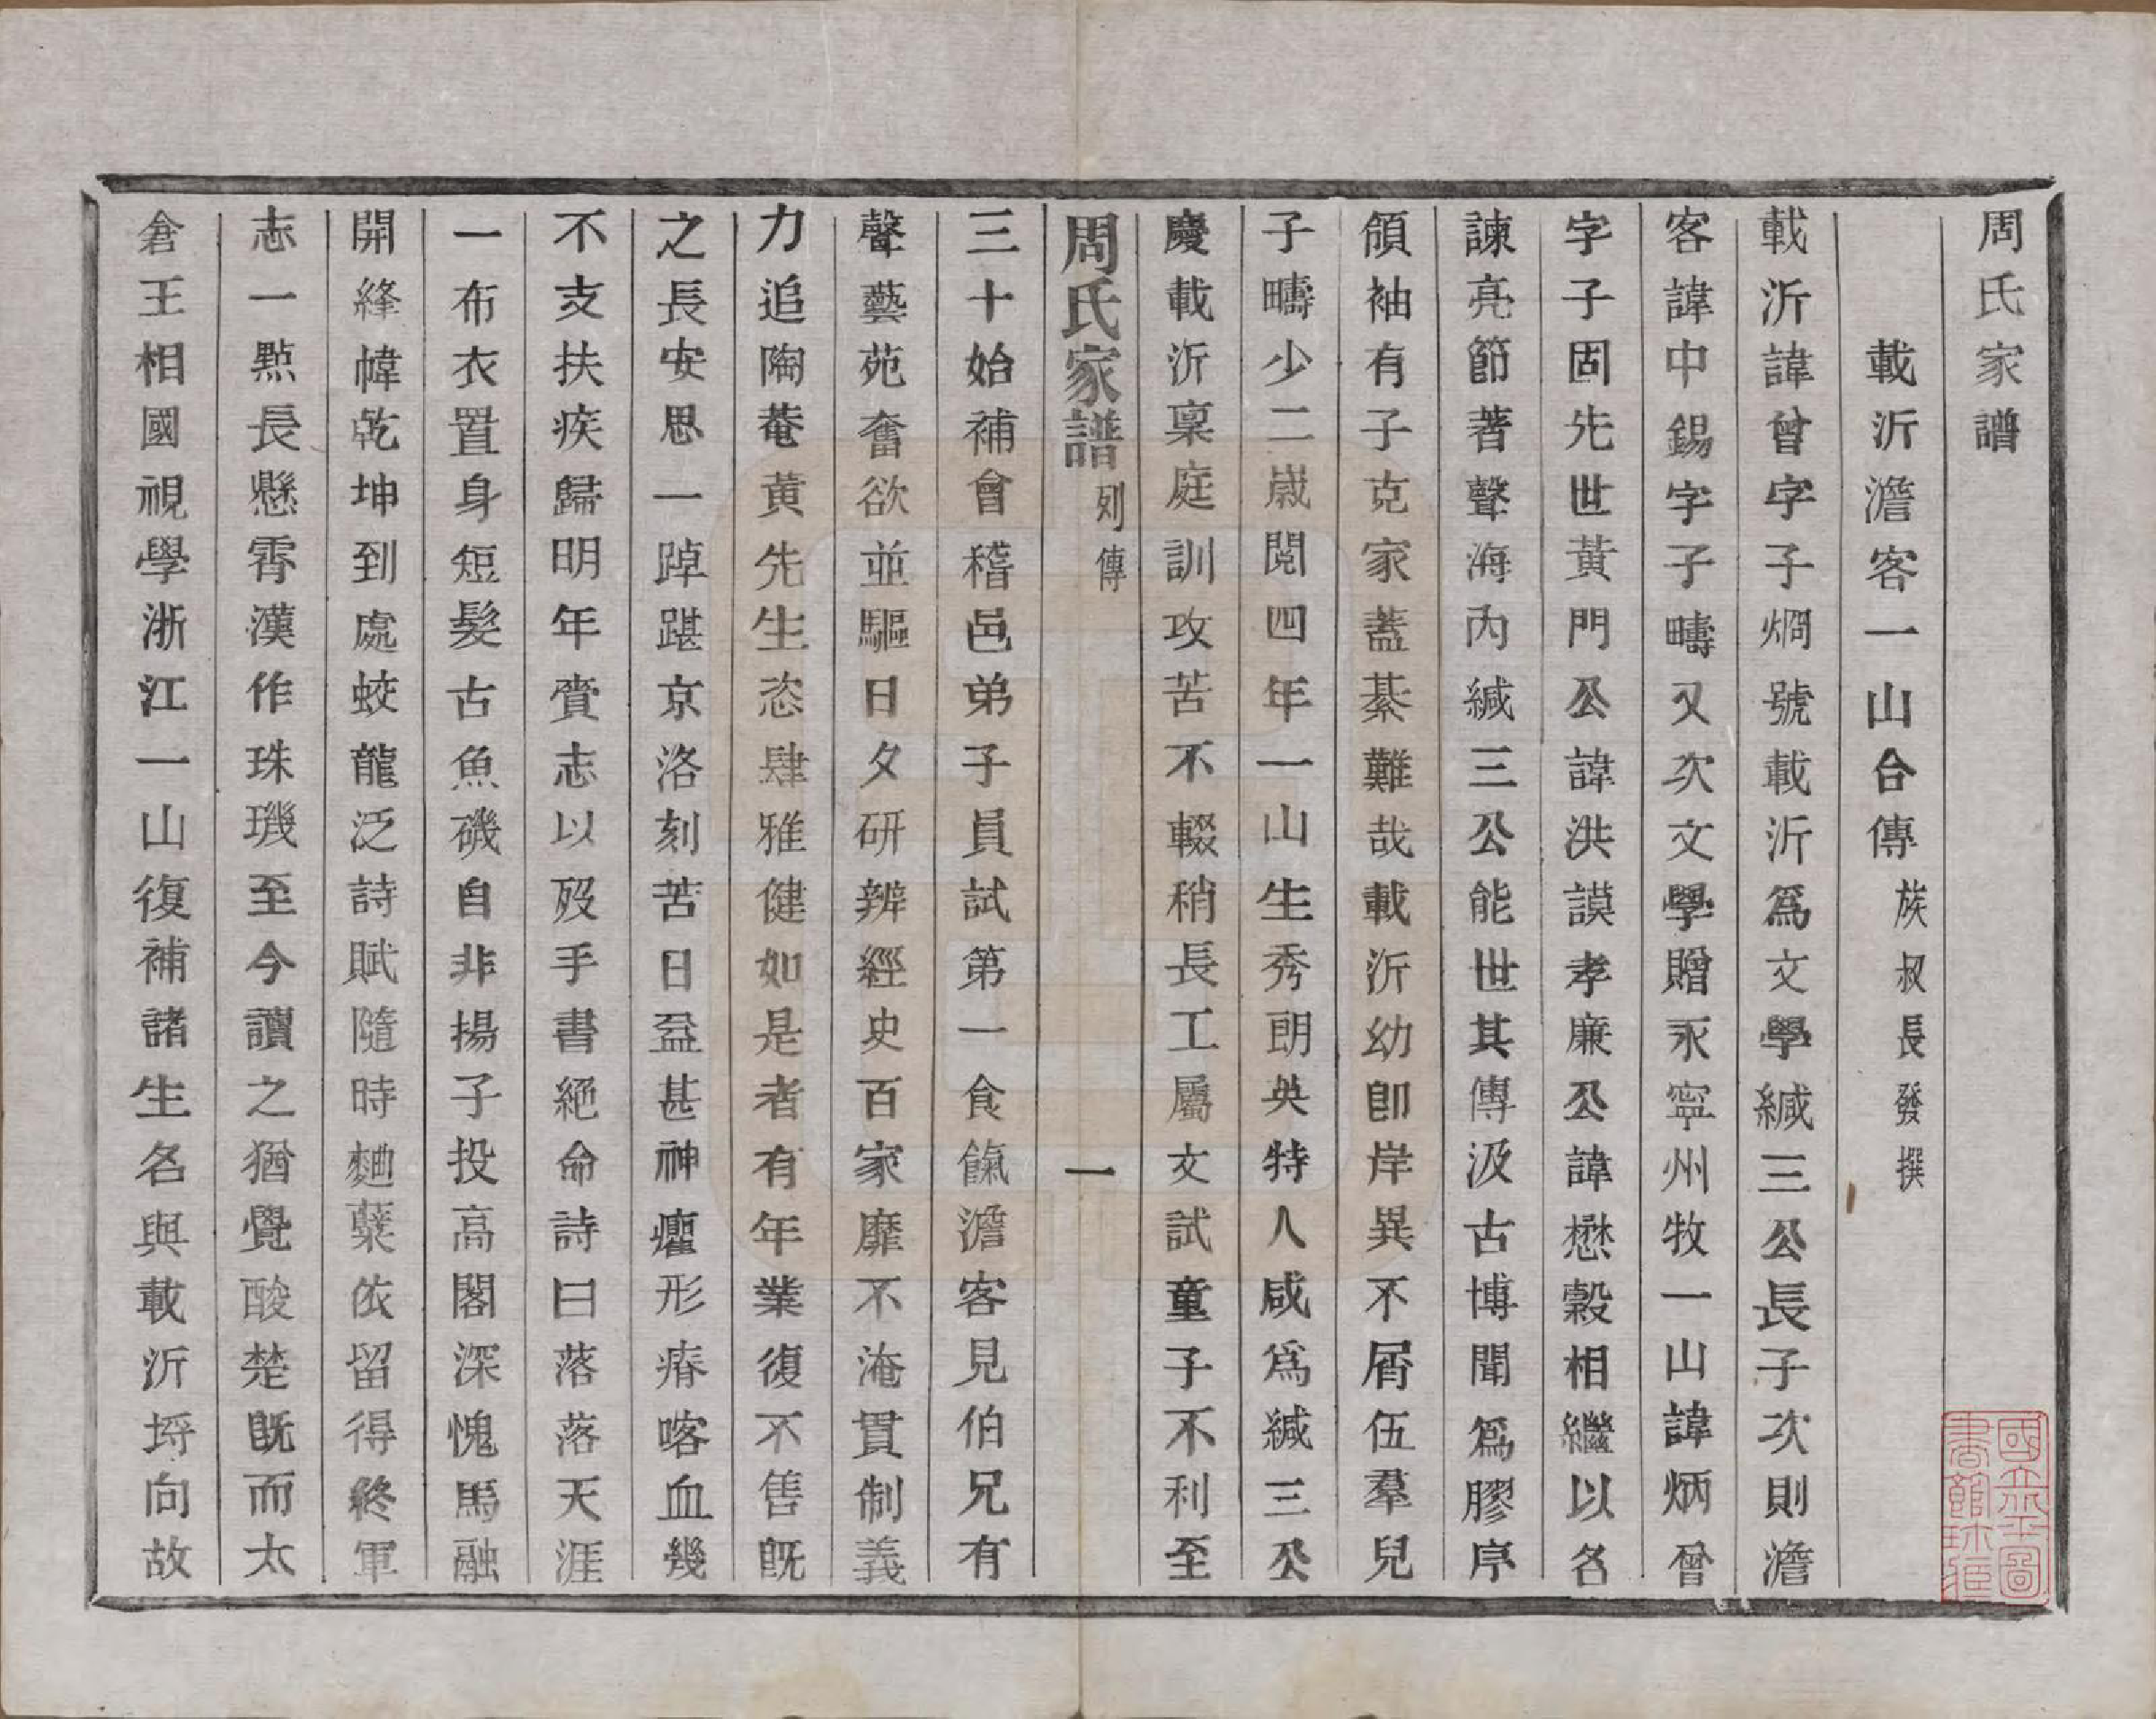 周氏家譜
載沂澹客一山合傳族叔長發撰
載沂諱曾字子烱號載沂爲文學緘三公長子次則澹
客諱中錫字子疇又次文學贈永寧州牧一山諱炳曾
字子固先世黃門公諱洪謨孝廉公諱懋穀相繼以名
諫亮節著聲海內緘三公能世其傳汲古博聞爲膠序
領袖有子克家蓋綦難哉載沂幼卽岸異不屑伍羣兒
子疇少二歲閱四年一山生秀朗英特人咸爲緘三公
慶載沂稟庭訓攻苦不輟稍長工屬文試童子不利至
周氏家譜 列傳 一
三十始補會稽邑弟子員試第一食餼澹客見伯兄有
聲藝苑奮欲並驅日夕研辨經史百家靡不淹貫制義
力追陶菴黃先生恣肆雅健如是者有年業復不售旣
之長安思一踔踸京洛刻苦日益甚神癯形瘠喀血幾
不支扶疾歸明年賫志以歿手書絕命詩曰落落天涯
一布衣置身短髮古魚磯自非揚子投高閣深愧馬融
開絳幃乾坤到處蛟龍泛詩賦隨時麯蘖依留得終軍
志一點長懸霄漢作珠璣至今讀之猶覺酸楚旣而太
倉王相國視學浙江一山復補諸生名與載沂埒向故
國立北平圖書館珍藏